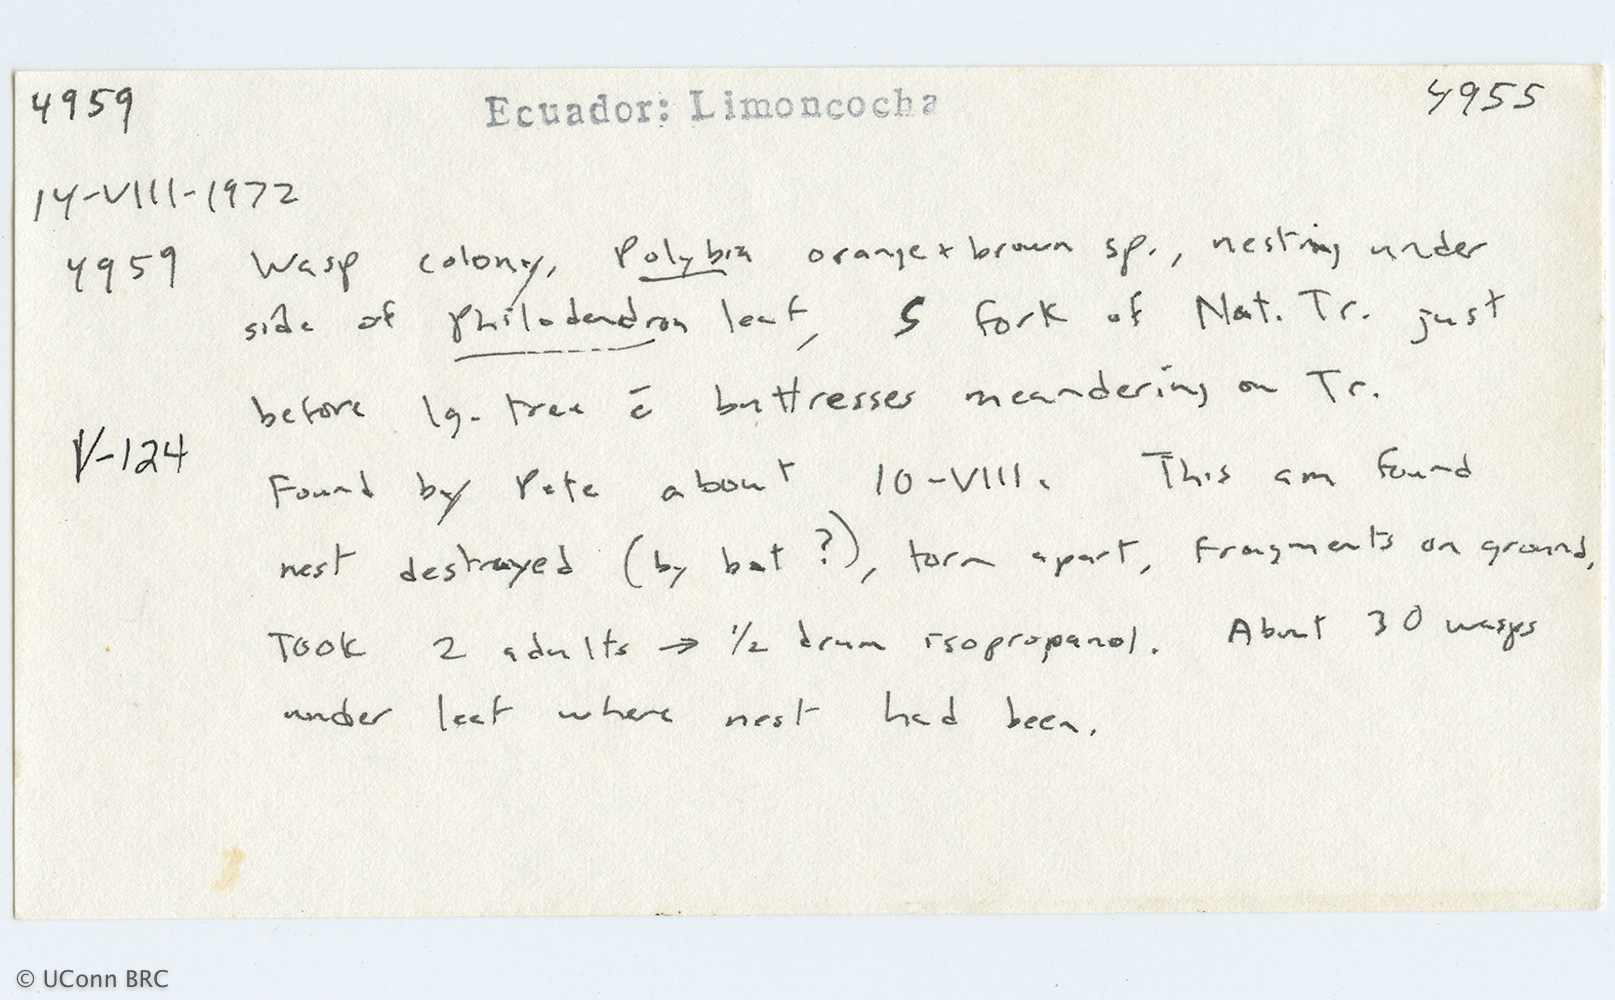 4959 Ecuador: Limoncocha 4955
14-VIII-1972
4959 Wasp colony, Polybia orange + brown sp., nesting under
side of Philodendron leaf, S fork of Nat. Tr. just
before lg. tree c̄ buttresses meandering on Tr.
V-124
Found by Pete about 10-VIII. This am found
nest destroyed (by bat?), torn apart, fragments on ground,
Took 2 adults → 1/2 dram isopropanol. About 30 wasps
under leaf where nest had been.
© UConn BRC